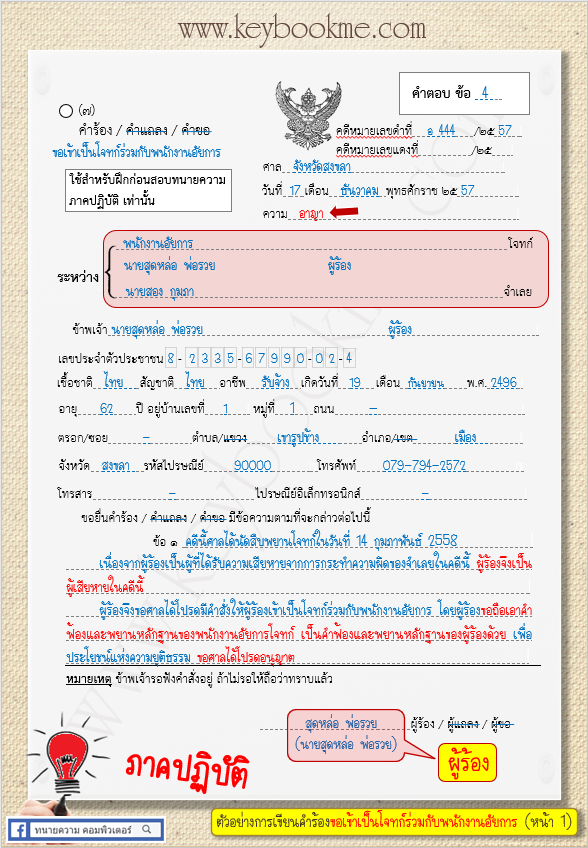 www.keybookme.com
คำตอบ ข้อ 4
(๗)
คำร้อง / คำแถลง / คำขอ
ขอเข้าเป็นโจทก์ร่วมกับพนักงานอัยการ
ใช้สำหรับฝึกก่อนสอบทนายความ
ภาคปฏิบัติ เท่านั้น
คดีหมายเลขดำที่ อ.444 /๒๕ 57
คดีหมายเลขแดงที่ /๒๕
ศาล จังหวัดสงขลา
วันที่ 17 เดือน ธันวาคม พุทธศักราช ๒๕ 57
ความ อาญา
พนักงานอัยการ โจทก์
นายสุดหล่อ พ่อรวย ผู้ร้อง
ระหว่าง
นายสอง กุมภา จำเลย
ข้าพเจ้า นายสุดหล่อ พ่อรวย ผู้ร้อง
เลขประจำตัวประชาชน 8 - 2 3 3 5 - 6 7 9 9 0 - 0 2 - 4
เชื้อชาติ ไทย สัญชาติ ไทย อาชีพ รับจ้าง เกิดวันที่ 19 เดือน กันยายน พ.ศ. 2496
อายุ 62 ปี อยู่บ้านเลขที่ 1 หมู่ที่ 1 ถนน –
ตรอก/ซอย – ตำบล/แขวง เขารูปช้าง อำเภอ/เขต เมือง
จังหวัด สงขลา รหัสไปรษณีย์ 90000 โทรศัพท์ 079-794-2572
โทรสาร – ไปรษณีย์อิเล็กทรอนิกส์ –
ขอยื่นคำร้อง / คำแถลง / คำขอ มีข้อความตามที่จะกล่าวต่อไปนี้
ข้อ ๑ คดีนี้ศาลได้นัดสืบพยานโจทก์ในวันที่ 14 กุมภาพันธ์ 2558
เนื่องจากผู้ร้องเป็นผู้ที่ได้รับความเสียหายจากการกระทำความผิดของจำเลยในคดีนี้ ผู้ร้องจึงเป็น
ผู้เสียหายในคดีนี้
ผู้ร้องจึงขอศาลได้โปรดมีคำสั่งให้ผู้ร้องเข้าเป็นโจทก์ร่วมกับพนักงานอัยการ โดยผู้ร้องขอถือเอาคำ
ฟ้องและพยานหลักฐานของพนักงานอัยการโจทก์ เป็นคำฟ้องและพยานหลักฐานของผู้ร้องด้วย เพื่อ
ประโยชน์แห่งความยุติธรรม ขอศาลได้โปรดอนุญาต
หมายเหตุ ข้าพเจ้ารอฟังคำสั่งอยู่ ถ้าไม่รอให้ถือว่าทราบแล้ว
สุดหล่อ พ่อรวย ผู้ร้อง / ผู้แถลง / ผู้ขอ
(นายสุดหล่อ พ่อรวย)
ผู้ร้อง
ภาคปฏิบัติ
ทนายความ คอมพิวเตอร์
ตัวอย่างการเขียนคำร้องขอเข้าเป็นโจทก์ร่วมกับพนักงานอัยการ (หน้า 1)